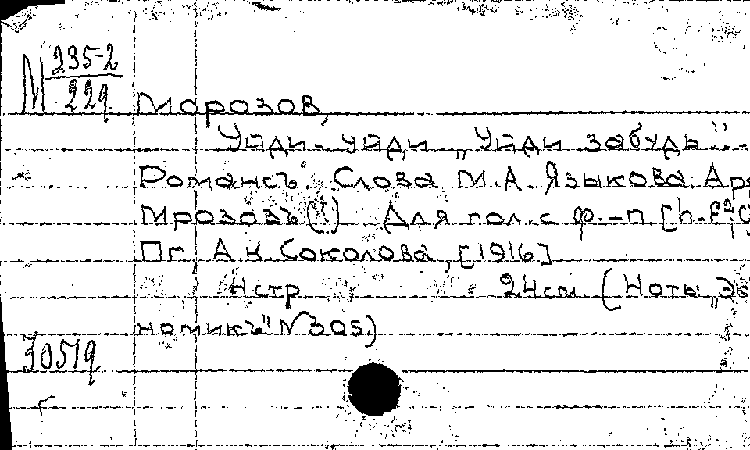 М 235-2
229
Морозов,
Уйди - уйди „Уйди забудь"..
Романсъ. Слова М.А. Языкова. Ар
Мрозовъ(!) Для гол. с ф.-п [h-
Пг. А.Н. Соколова, [1916]
4стр 24см (Ноты „Эко
номикъ" N305.)
30519
г